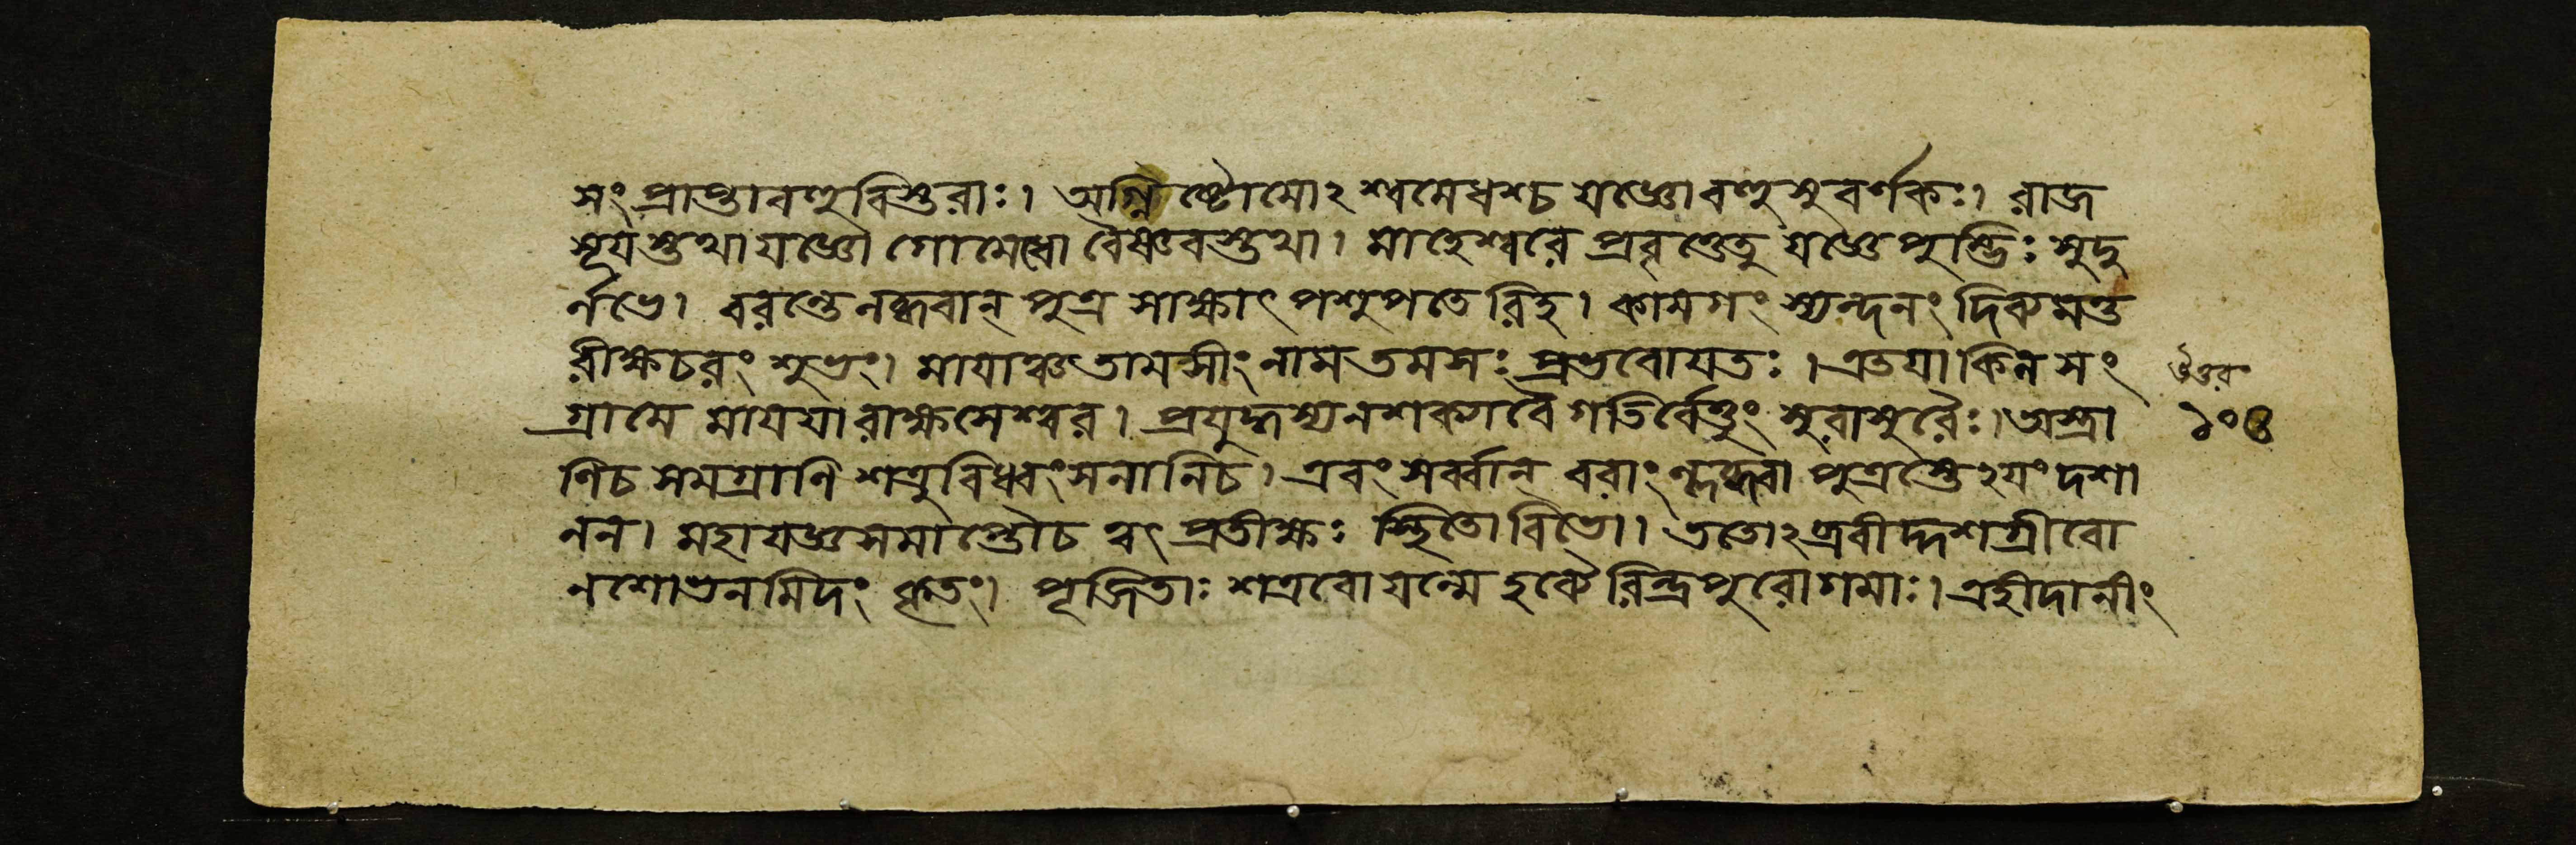 সংপ্রাপ্তাবহুবিস্তরাঃ। অগ্নিষ্টোমোঽশ্বমেধশ্চ যজ্ঞোবহুসুবর্ণকঃ। রাজ
সূযস্তথাযজ্ঞো গোমেধো বৈষ্ণবস্তথা। মাহেশ্বরে প্রবৃত্তেতু যজ্ঞেপুম্ভিঃ সুদু
র্লভে। বরন্তেলব্ধবান্ পুত্র সাক্ষাৎ পশুপতেরিহ। কামগং স্যন্দনং দিব্যমন্ত
রীক্ষচরং শুভং। মাযাঞ্চতামসীং নামতমসঃ প্রভবোযতঃ। এতযাকিল সং
গ্রামে মাযযারাক্ষসেশ্বর। প্রযুদ্ধস্যনশক্যাবৈ গতির্বেত্তুং সুরাসুরৈঃ। অস্ত্রা
ণিচ সমগ্রাণি শত্রুবিধ্বংসনানিচ। এবংসর্ব্বান্ বরাংল্লব্ধ্বা পুত্রস্তেঽযং দশা
নন। মহাযজ্ঞসমাপ্তৌচ ত্বৎ প্রতীক্ষঃ স্থিতোবিভো। ততোঽব্রবীদ্দশগ্রীবো
নশোভনমিদং কৃতং। পূজিতাঃ শত্রবোযন্মে হব্যৈরিন্দ্রপুরোগমাঃ। এহীদানীং
উত্তর
১০৪